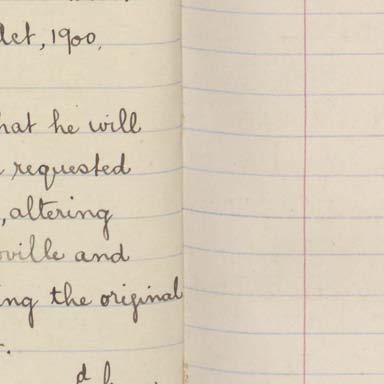 Act, 1900,
hat he will
requested
, altering
oville and
ing the original